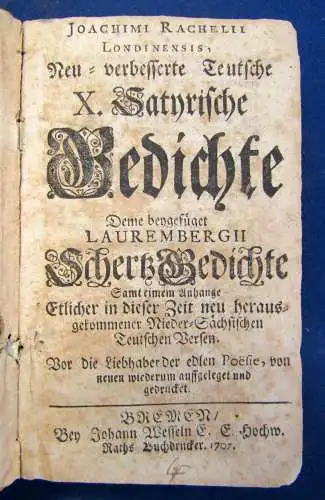 JOACHIMI RACHELII
LONDINENSIS,
Neu-verbesserte Teutsche
X. Satyrische
Gedichte
Deme beygefüget
LAUREMBERGII
SchertzGedichte
Samt einem Anhange
Etlicher in dieser Zeit neu heraus-
gekommener Nieder-Sächsischen
Teutschen Versen.
Vor die Liebhaber der edlen Poësie, von
neuen wiederum auffgeleget und
gedrucket.
BREMEN/
Bey Johann Wesseln E. E. Hochw.
Raths Buchdrucker. 1707.